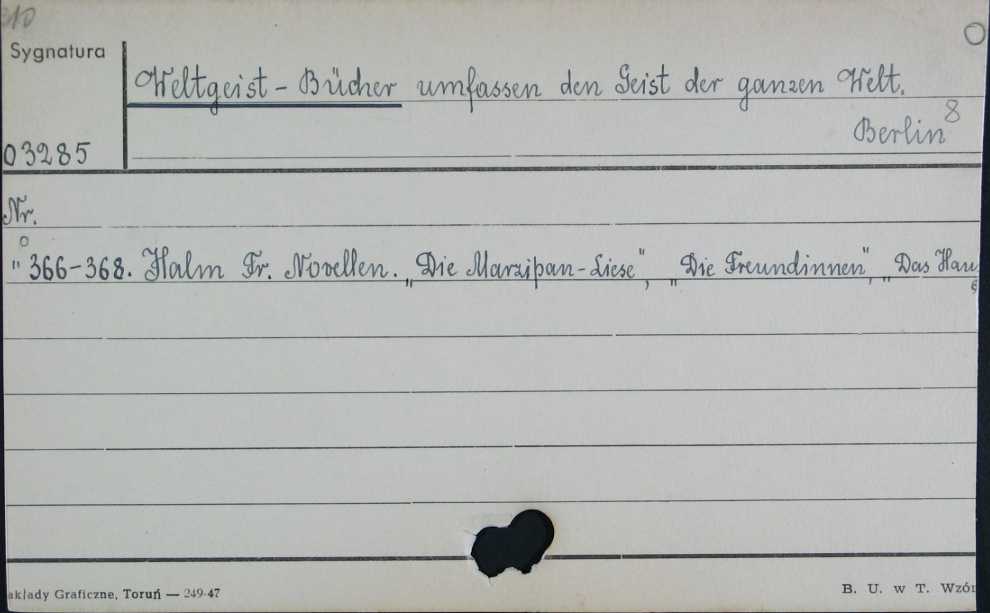 310
Sygnatura
Weltgeist - Bücher umfassen den Geist der ganzen Welt.
Berlin 8
03285
Nr.
" 366-368. Halm Fr. Novellen. „Die Marzipan-Liese", „Die Freundinnen", „Das Haus
akłady Graficzne, Toruń — 249-47
B. U. w T. Wzór